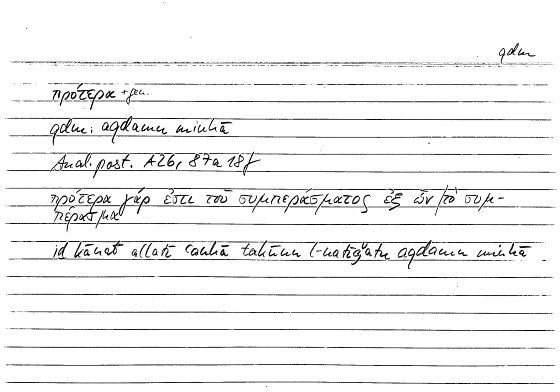 qdm
πρότερα + gen.
qdm: aqdamu minhā
Anal. post. A26, 87a 18f
πρότερα γάρ ἐστι τοῦ συμπεράσματος ἐξ ὧν/τὸ συμ-
πέρασμα
id kānat allatī ʿanhā takūnu l-natīǧatu aqdamu minhā